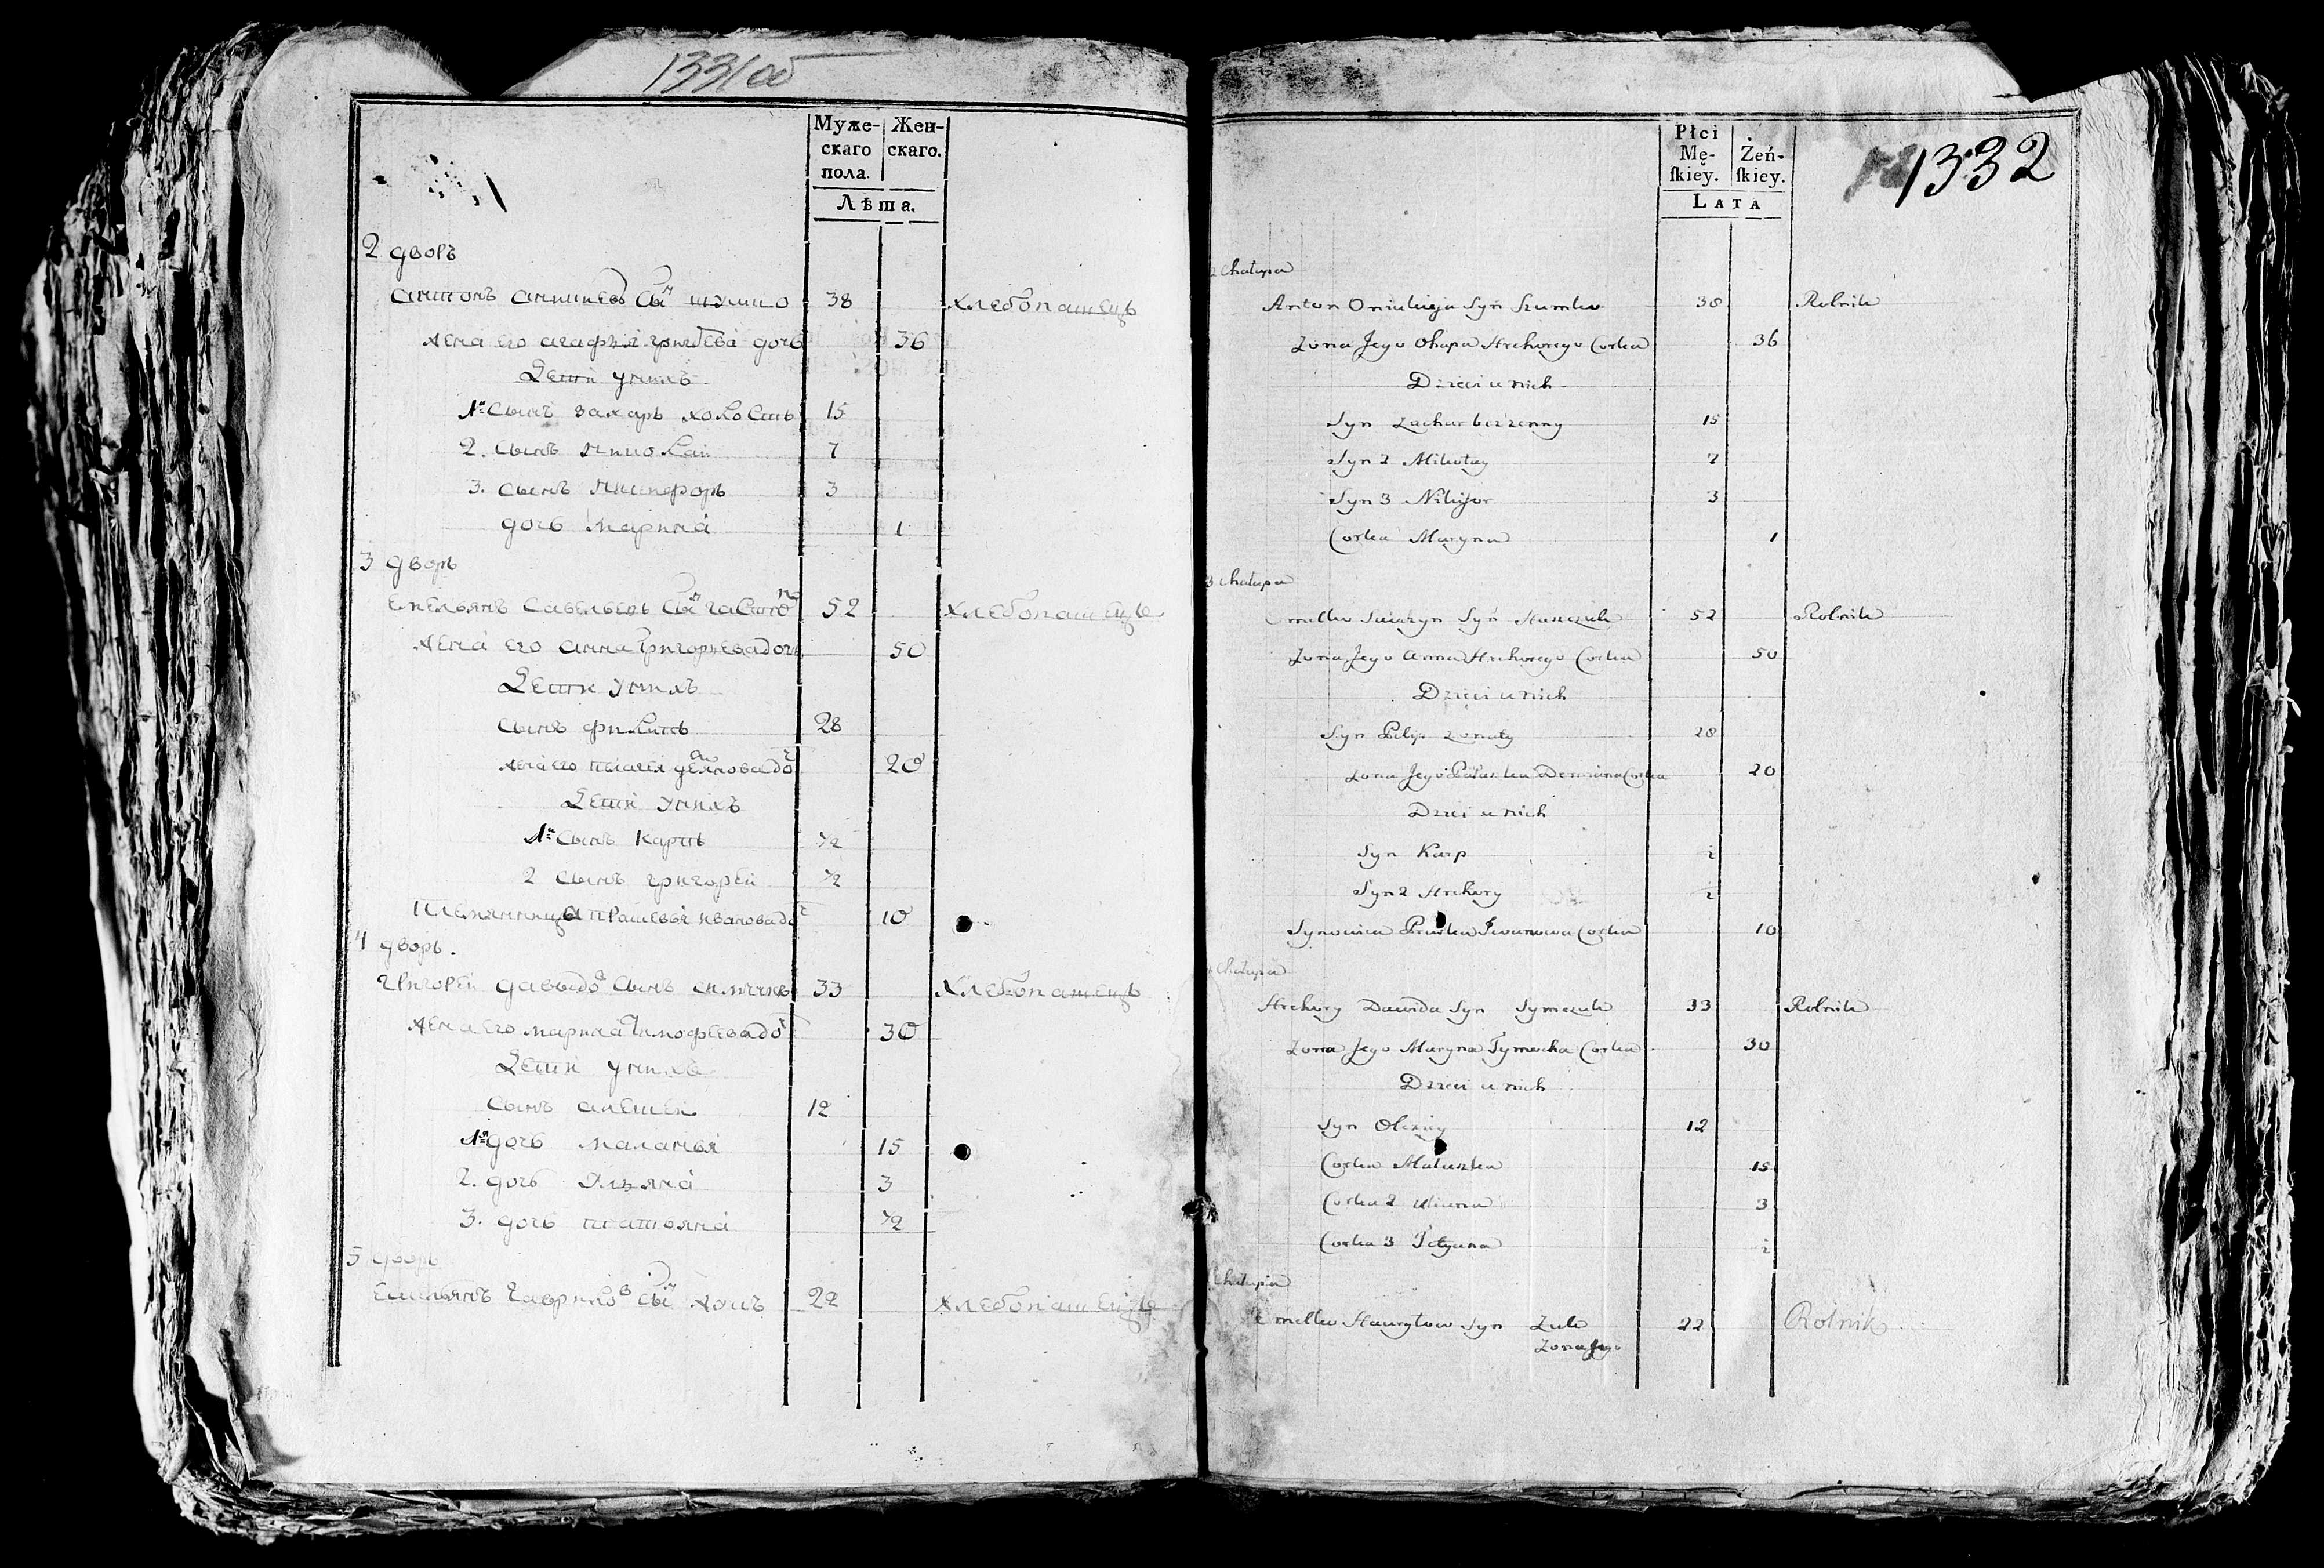 1331об
Муже- Жен-
скаго скаго.
пола.
Лѣта.
2 дворъ
антонъ аникиевъ сынъ шумко 38 хлебопашецъ
жена его агафья григорьева дочь 36
Дети у нихъ
1й сынъ захаръ холость 15
2. сынъ николай 7
3. сынъ никифоръ 3
дочь марина 1
3 дворъ
Емельянъ савельевъ сынъ 52 хлебопашецъ
жена его анна григорьева дочь 50
Дети у нихъ
сынъ филипъ 28
жена его пелагея демянова дочь 20
Дети у нихъ
1й сынъ карпъ 1/2
2 сынъ григорей 1/2
племянница прасковья иванова дочь 10
4 дворъ.
григорей давыдовъ сынъ симчукъ 33 Хлебопашецъ
жена его марина тимофеева дочь 30
Дети у нихъ
сынъ алексей 12
1я дочь маланья 15
2. дочь ульяна 3
3. дочь татьяна 1/2
5 дворъ
Емельянъ гавриловъ сынъ жукъ 22 хлебопашецъ
1332
Płci
Mę- Żeń-
ſkiey. ſkiey.
LATA
2 Chałupa
Anton Onikieja Syn Szumko 38 Rolnik
Zona Jego Ohapa Hrehorego Corka 36
Dzieci u nich
Syn Zachar bezzenny 15
Syn 2 Mikołay 7
Syn 3 Nikifor 3
Corka Maryna 1
3 Chałupa
Omelko Syn 52 Rolnik
Zona Jego Anna Hrehorego Corka 50
Dzieci u nich
Syn Pilip Zonaty 28
Zona Jego Demiana Corka 20
Dzieci u nich
Syn Karp 1/2
Syn 2 Hrehory 1/2
Synowica Praska Iwanowa Corka 10
4 Chałupa
Hrehory Dawida Syn Symczuk 33 Rolnik
Zona Jego Maryna Tymocha Corka 30
Dzieci u nich
Syn Olexiey 12
Corka Małaszka 15
Corka 2 Uliana 3
Corka 3 Tetyana 1/2
Chałupa
Omelko Hawryłow Syn Zuk 22 Rolnik
Zona Jego